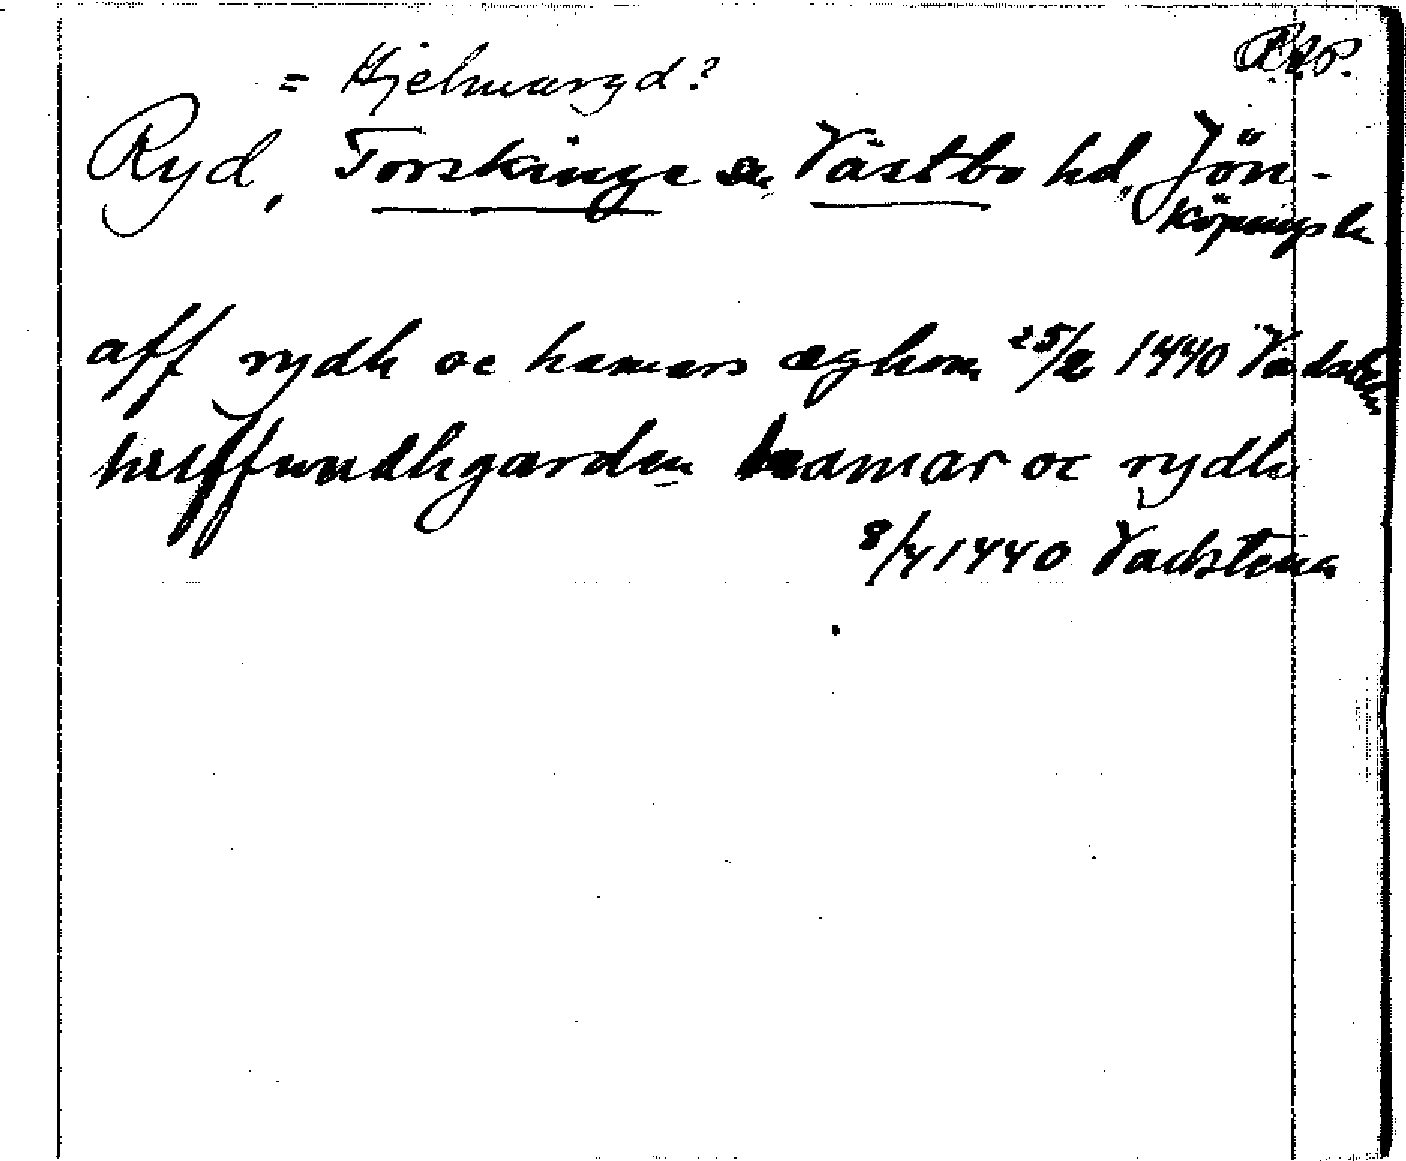 = Hjelmaryd?
Ryd, Torskinge sn, Västbo hd, Jön-
köpings l.
aff rydh oc hamars æghom 25/2 1440 Vadstena
hælffwndhgarden hamar oc rydh
8/4 1440 Vadstena